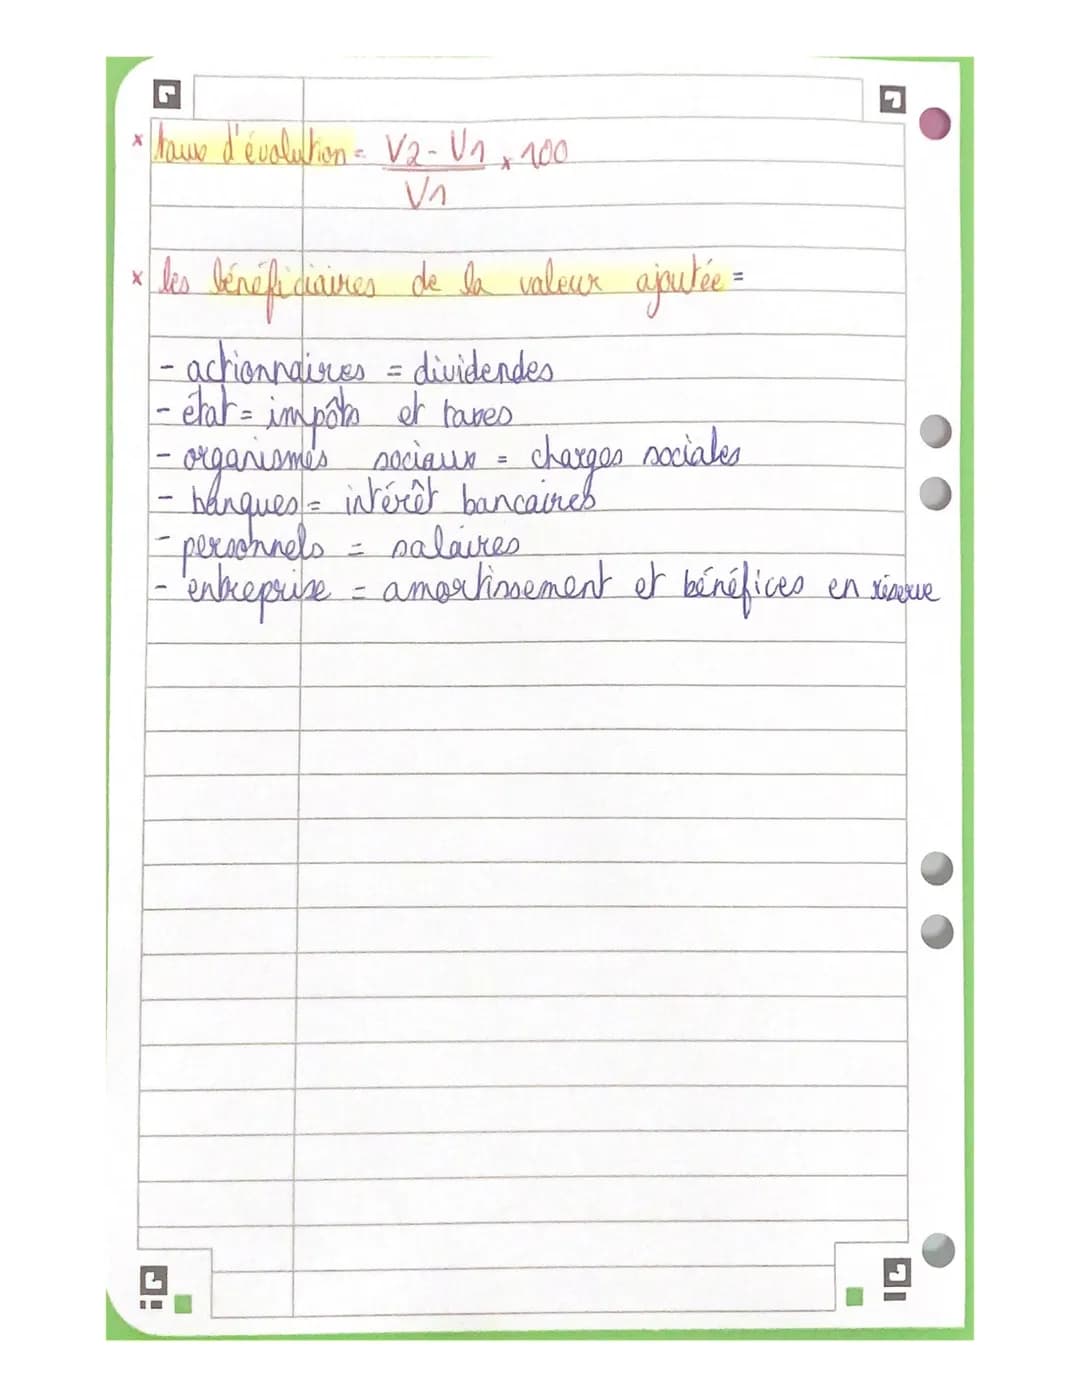 x taux d'évolution = V2 - V1 x 100
V1
x les bénéficiaires de la valeur ajoutée =
- actionnaires = dividendes
- état = impôts et taxes
- organismes sociaux = charges sociales
- banques = intérêt bancaires
- personnels = salaires
- entreprise = amortissement et bénéfices en réserve